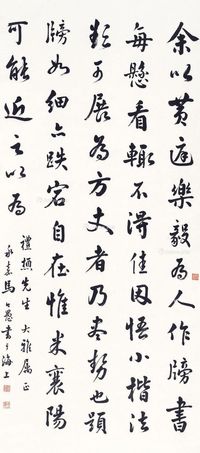 余以黄庭樂毅為人作牓書
每懸看輒不得佳因悟小楷法
欲可展為方丈者乃盡勢也題
牓如細亦跌宕自在惟米襄陽
可能近之以為
先生大雅屬正
永嘉馬公愚書于海上